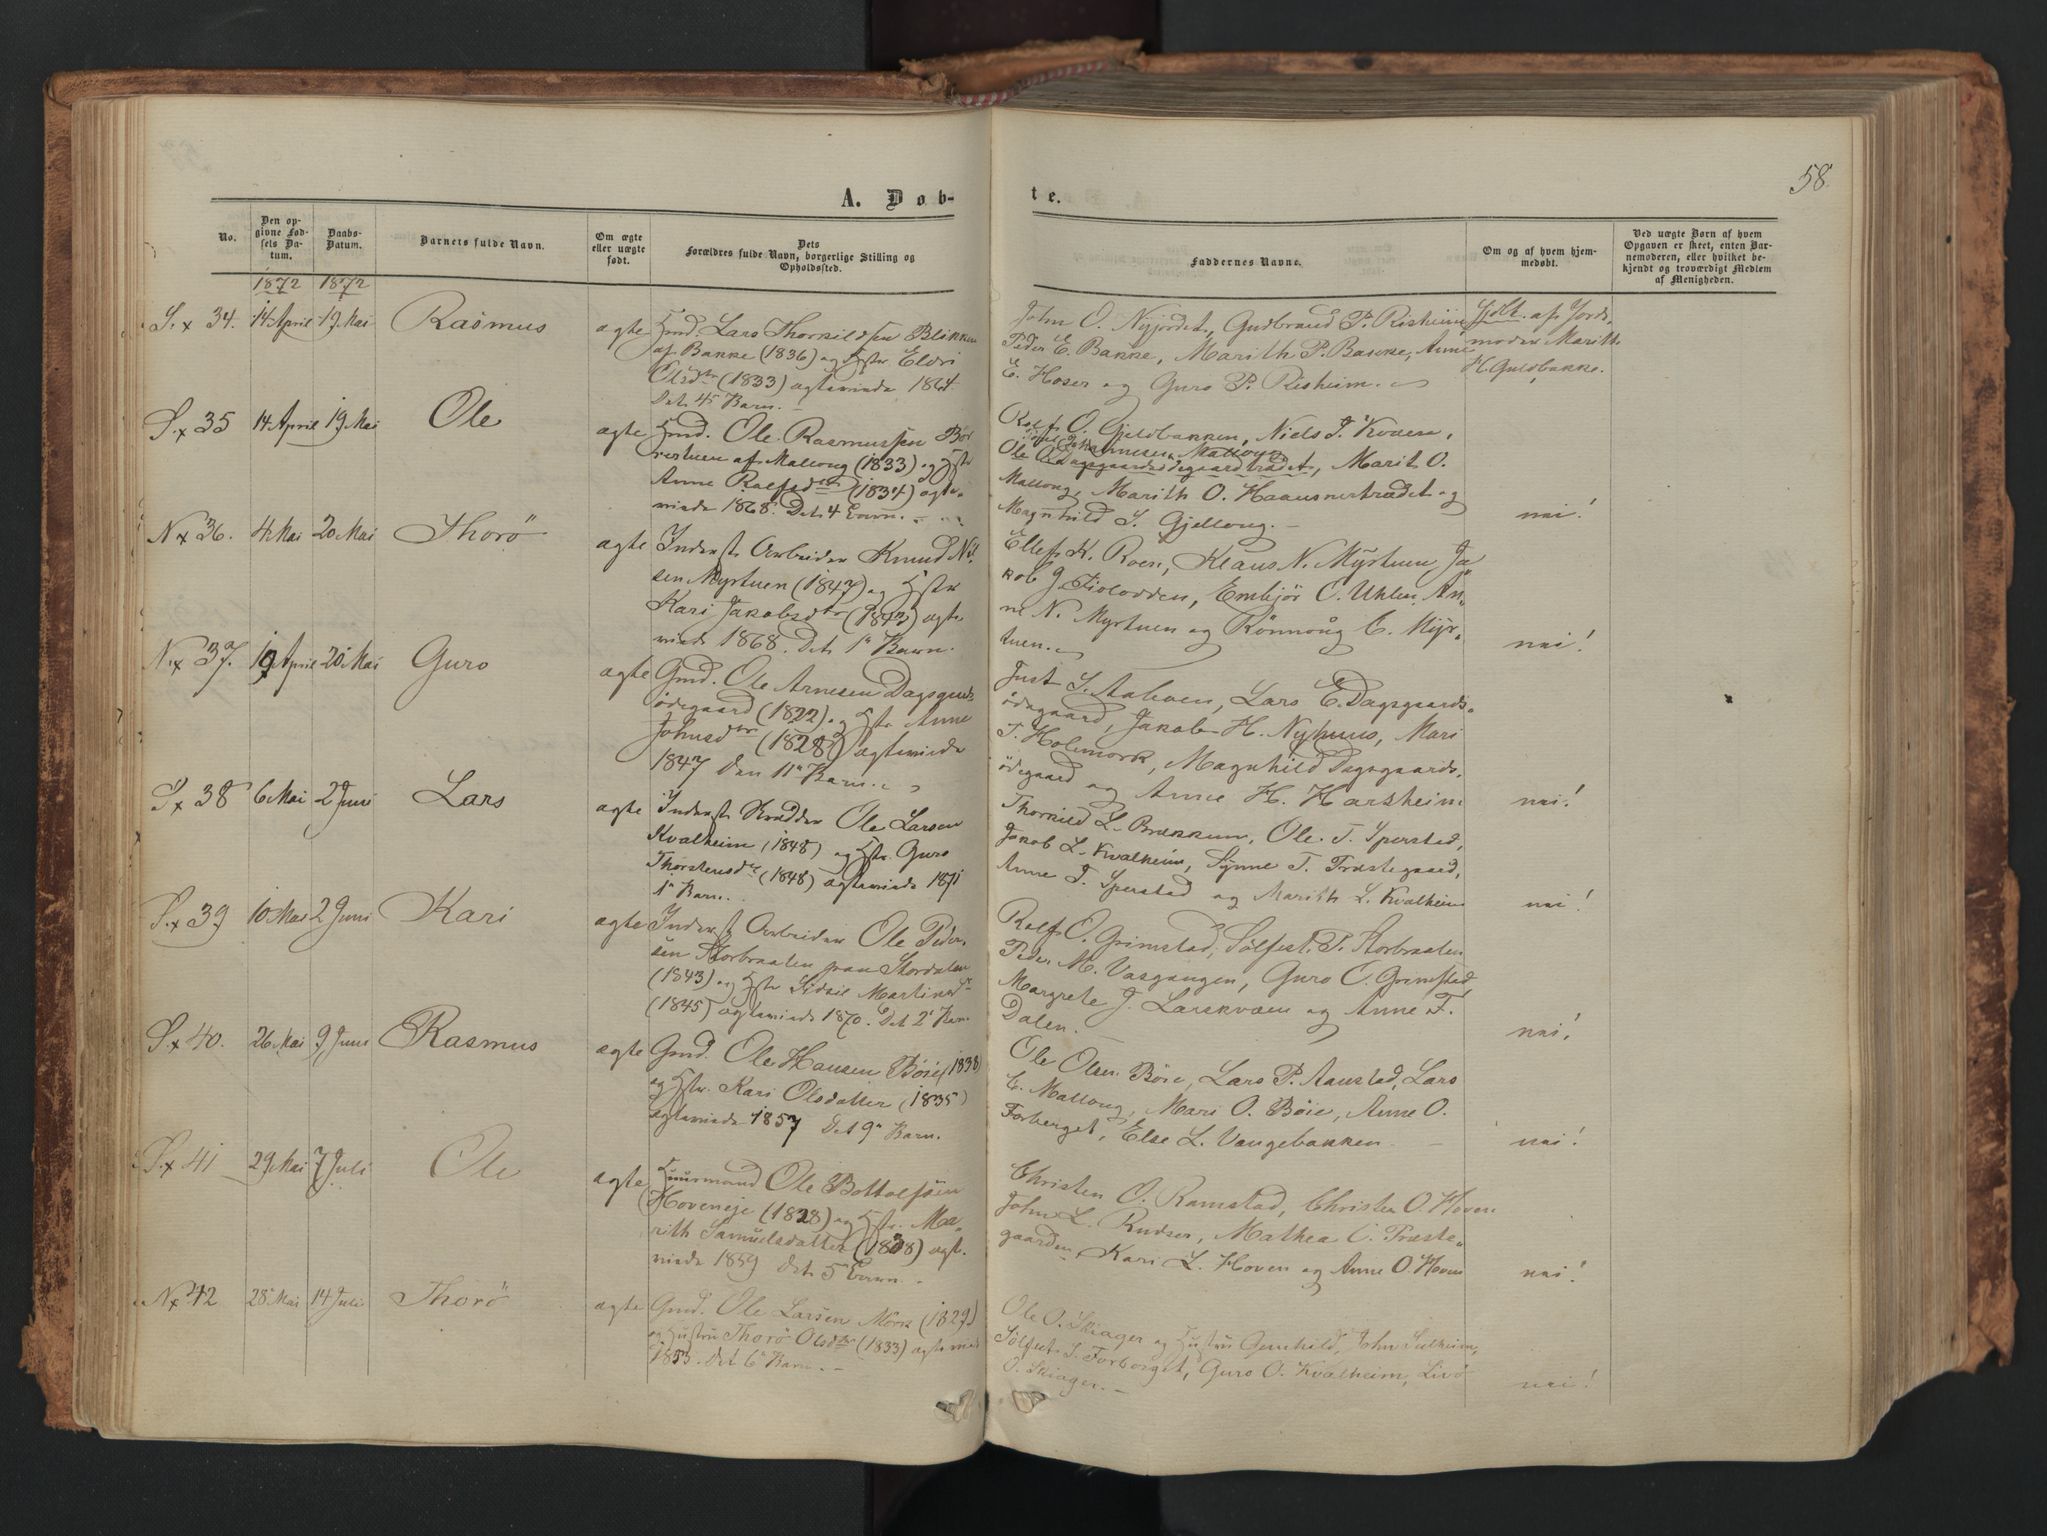 58.
A. Dob-
te.
No.
Den op-
givne Fød-
sels Da-
tum.
Daabs-
Datum.
Barnets fulde Navn.
Om ægte
eller uægte
født.
Dets
Forældres fulde Navn, borgerlige Stilling og
Opholdssted.
Faddernes Navne.
Om og af hvem hjem-
medøbt.
Ved uægte Børn af hvem
Opgaven er skeet, enten Bar-
nemoderen, eller hvilket be-
kjendt og troværdigt Medlem
af Menigheden.
1872 1872
S. x 34. 14 April 19 Mai Rasmus ægte
Lars Thorkildsen Blikken
af Bakke (1836) og Hstr Eldri
Olsdtr (1833) ægteviede 1864.
Det 4de Barn.
John O. Nyjordet, Gudbrand P. Risheim
Peder E. Bakke, Marith P. Bakke, Anne
E. Hoser og Guro P. Risheim.
Hjdt. af Jord-
moder Marith
H. Guldbakke.
S. x 35 14 April 19 Mai Ole ægte
Ole Rasmussen
af Mallong (1833) og Hstr
Anne Rolfsdtr (1834) ægte-
viede 1868. Det 4 Barn.
Rolf O. Gjeldbakken, Niels J. Kvaen,
Mallong
Ole O. Marit O.
Mallong, Marith O. og
Magnhild S. Gjellong.
nei!
N x 36. 4 Mai 20 Mai Thorø ægte
Inderst Arbeider Knud Nil-
sen Myrtuen (1847) og Hstr
Kari Jakobsdtr (1843) ægte-
viede 1868. Det 1ste Barn.
Ellef K. Roen, Klaus N. Myrtuen, Ja-
kob J. Embjør O. Uhlen, An-
ne N. Myrtuen og Rønnoug C. Myr-
tuen.
nei!
N. x 37. 19 April 20 Mai Guro ægte
Gmd. Ole Arnesen Dagsgards-
ødegaard (1822) og Hstr Anne
Johnsdtr (1828) ægteviede
1847 den 11te Barn.
Just S. Aaboen, Lars E. Dagsgaards-
ødegaard, Jakob H. Nyhuus, Mari
T. Holemork, Magnhild Dagsgaards-
ødegaard og Anne H. Harsheim
nei!
S x 38 6 Mai 2 Juni Lars ægte
Inderst Skrædder Ole Larsen
Kvalheim (1848) og Hstr. Guro
Thorstensdtr (1848) ægteviede 1871
1ste Barn.
Thorkild L. Brækkum, Ole T. Sperstad,
Jakob L. Kvalheim, Synne T. Præstegaard,
Anne T. Sperstad og Marith L. Kvalheim
nei!
S. x 39 10 Mai 2 Juni Kari ægte
Inderst Arbeider Ole Peder-
sen Storbraaten paa Stordalen
(1843) og Hstr Sidsil Martinsdtr
(1845) ægteviede 1870. Det 2det Barn
Rolf O. Grimstad, Sølfest P. Storbraaten
Peder M. Vasgangen, Guro O. Grimstad,
Margrete J. Larskvæn og Anne F.
Dalen.
nei!
S. x 40. 26 Mai 9 Juni Rasmus ægte
Gmd. Ole Hansen Bøie (1838)
og Hstr. Kari Olsdatter (1835)
ægteviede 1857 Det 9de Barn.
Ole Olsen Bøie, Lars P. Aanstad, Lars
E. Mallong, Mari O. Bøie, Anne O.
Forberget, Else L. Vangebakken.
nei!
S. x 41 29 Mai 7 Juli Ole ægte
Huusmand Ole Bottolfsen
Hoveneje (1828) og Hstr. Ma-
rith Samuelsdatter (1838) ægt-
viede 1859 Det 5te Barn.
Christen O. Ramstad, Christen O. Hoven
John L. Rudser, Mathea C. Præste-
gaarden, Kari L. Hoven og Anne O. Hoven
nei!
N x 42 28 Mai 14 Juli Thorø ægte
Gmd. Ole Larsen Mørk (1829)
og Hustru Thorø Olsdtr (1833) ægteviede
1853. Det 6te Barn.
Ole O. Skiager og Hustru Gunhild, John Sulheim,
Sølfest S. Forberget, Guro O. Kvalheim, Livø
O. Skiager.
nei!